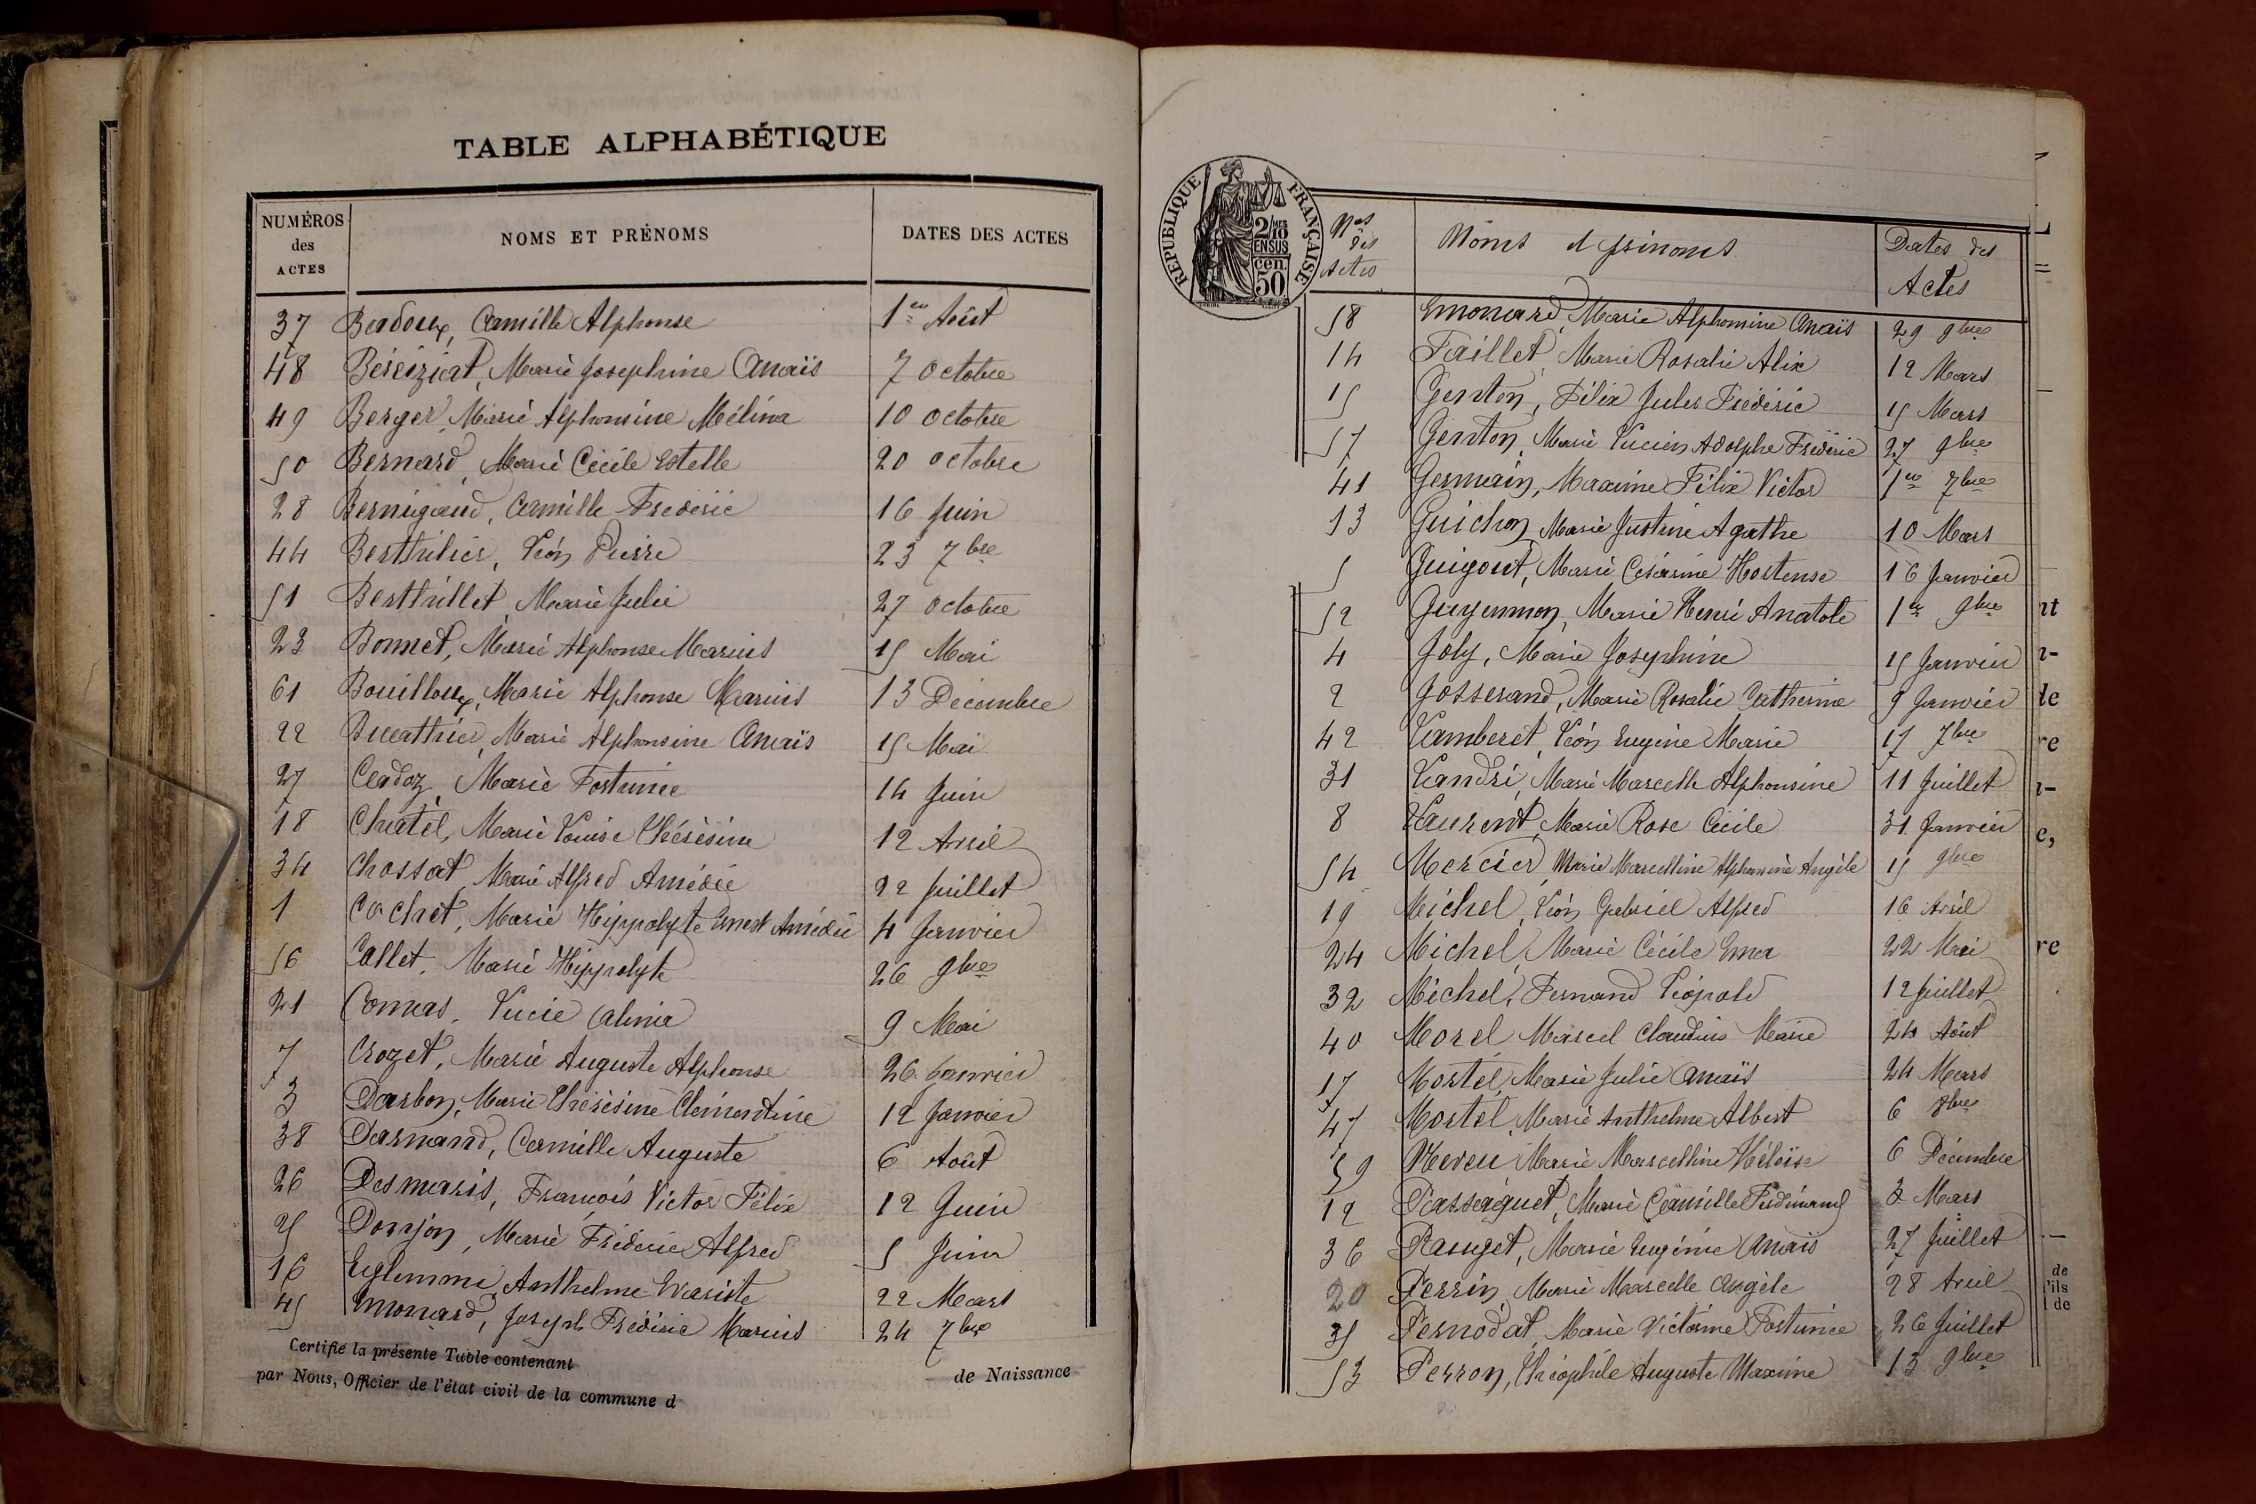 TABLE ALPHABÉTIQUE
NUMÉROS des ACTES NOMS ET PRÉNOMS DATES DES ACTES
37 Badoux, Camille Alphonse 1er Août
48 Béréiziat, Marie Josephine Anaïs 7 Octobre
49 Berger, Marie Alphonsine Mélina 10 Octobre
50 Bernard, Marie Cécile Estelle 20 Octobre
28 Bernigaud, Camille Frédéric 16 Juin
44 Berthilier, Léon Pierre 23 7bre
51 Berthillet Marie Julie 27 Octobre
23 Bonnet, Marie Alphonse Marius 15 Mai
61 Bouilloux, Marie Alphonse Marius 13 Décembre
22 Buathier, Marie Alphonsine Anaïs 15 Mai
27 Cadoz Marie Fortunée 14 Juin
18 Chatel, Marie Louise Thérèsine 12 Avril
34 Chossat, Marie Alfred Amédée 22 Juillet
1 Cochet, Marie Hippolyte Ernest Amédée 4 Janvier
56 Collet, Marie Hippolyte 26 9bre
21 Comas, Lucie Calinia 9 Mai
7 Crozet, Marie Auguste Alphonse 26 Janvier
3 Darbon, Marie Thérèsine Clémentine 12 Janvier
38 Darnand, Camille Auguste 6 Août
26 Desmaris, François Victor Félix 12 Juin
25 Donjon, Marie Frédéric Alfred 5 Juin
16 Euglemme Anthelme Evariste 22 Mars
45 Emonard, Joseph Frédéric Marius 24 7bre
Certifié la présente Table contenant de Naissance
par Nous, Officier de l'état civil de la commune d
RÉPUBLIQUE FRANÇAISE
2/10 EN SUS
50 cen.
Nos des Actes Noms et prénoms Dates des Actes
58 Emonard, Marie Alphonsine Anaïs 29 9bre
14 Faillet, Marie Rosalie Alix 12 Mars
15 Genton, Félix Jules Frédéric 15 Mars
57 Genton, Marie Lucien Adolphe Frédéric 27 9bre
41 Germain, Maxime Félix Victor 1er 7bre
13 Guichon, Marie Justine Agathe 10 Mars
5 Guigout, Marie Césarine Hortense 16 Janvier
52 Guyennon, Marie Henri Anatole 1er 9bre
4 Joly, Marie Josephine 15 Janvier
2 Josserand, Marie Rosalie Catherine 9 Janvier
42 Lamberet, Léon Eugène Marie 17 7bre
31 Landré, Marie Marcelle Alphonsine 11 Juillet
8 Laurent, Marie Rose Cécile 31 Janvier
54 Mercier, Marie Marcelline Alphonsine Angèle 15 9bre
19 Michel, Léon Gabriel Alfred 16 Avril
24 Michel, Marie Cécile Ema 22 Mai
32 Michel, Fernand Léopold 12 Juillet
40 Morel Marcel Claudius Marie 24 Août
17 Mortel, Marie Julie Anaïs 24 Mars
47 Mortel, Marie Anthelme Albert 6 8bre
59 Neveu Marie Marcelline Héloïse 6 Décembre
12 Passaquet, Marie Camille Ferdinand 3 Mars
36 Pauget, Marie Eugénie Anaïs 27 Juillet
20 Perrin, Marie Marcelle Angèle 28 Avril
35 Pernodat, Marie Victorine Fortunée 26 Juillet
53 Perron, Théophile Auguste Maxime 13 9bre